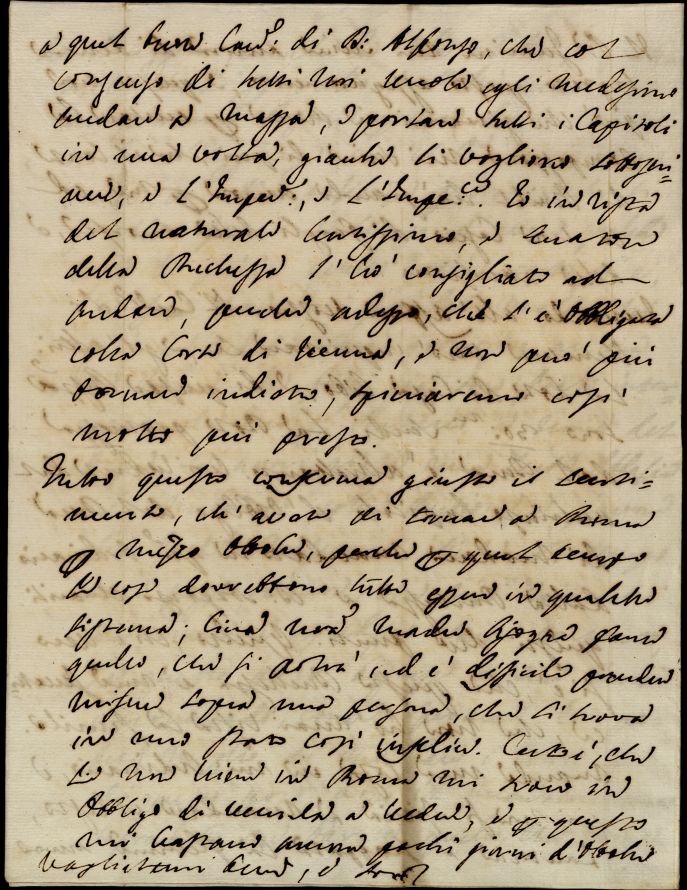 a quel buon Card: di D: Alfonso, che col
consenso di tutti noi vuole egli medesimo
andare a Massa, e portare tutti i Capitoli
in una volta, giacche li vogliono sottoscri=
vere, e l'Imper:, e l'Impe:ce. Io in vista
del naturale lentissimo, e
della Duchessa l'hò consigliato ad
andare, perche adesso, che s'è obbligata
colla Corte di Vienna, e non può più
tornare indietro, spicciaremo così
molto più presto.
Tutto questo conferma giusto il senti=
mento, ch'avete di tornare a Roma
p mezzo Ottobre, perche p quel tempo
le cose dovrebbono tutte essere in qualche
sistema; Circa nra Madre bisogna fare
quello, che si potrà, ed è difficile prendere
misure sopra una persona, che si trova
in uno stato così infelice. Certo è, che
se non viene in Roma mi trovo in
obbligo di venirla a vedere, e p questo
mi bastano ancora pochi giorni d'Ottobre
Vogliatemi bene, e